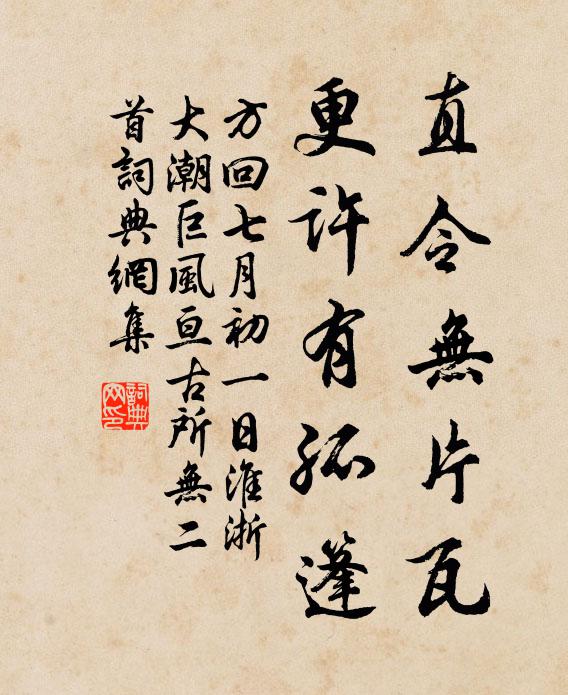 直令無片瓦
更許有孤篷
方回七月初一日淮浙
大潮巨風亘古所無二
首詞典網集
詞典网印